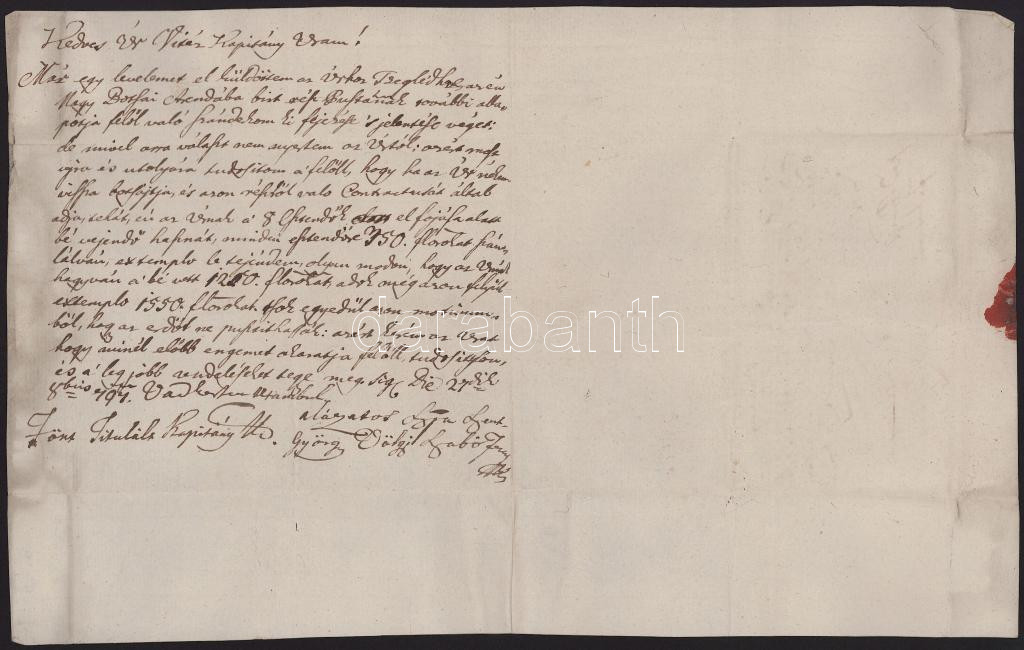 Kedves Ur Vitéz Kapitány Uram!
Már egy levelemet el küldöttem az Úrhoz Czeglédre, az én
Nagy Botsai Arendába birt rész Pusztának további álla-
potja felől való szándékom ki fejezése 's jelentése végett:
de mivel arra választ nem nyertem az Úrtól: azért most
ujra és utolyára tudositom a felöll, hogy ha az Úr nékem
vissza botsájtja, és azon részről való Contractusát által
adja, tehát, én az Úrnak a 8 Esztendők el fojása alatt
bé vejendő hasznát, minden esztendőre 150. florokat szám-
lálván, extemplo le tejéndem, olyan modon, hogy az Úrnál
hagyván a bé vett 1200. florokat, adok még azon felyül
extemplo 1550. florokat. Tsak egyedül azon
ból, hogy az erdőt ne pusztithassák: azért kérem az Urat
hogy minél előbb engemet akaratja felöll, tudosittson,
és a leg jobb rendeléseket tegye meg. Sig. Die 27dik
8bris 797.
Fönt Titulált Kapitány Úr. alázatos Szent-
György Völgyi Szabó
darabanth